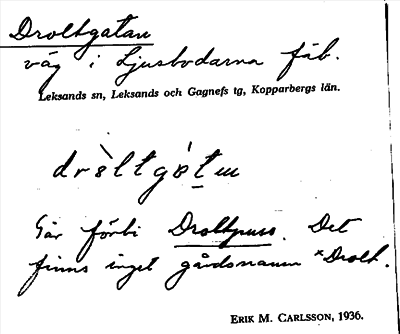 Droltgatan
väg i Ljusbodarna fäb.
Leksands sn, Leksands och Gagnefs tg, Kopparbergs län.
Går förbi Droltpuss. Det
finns inget gårdsnamn *Drolt.
ERIK M. CARLSSON, 1936.